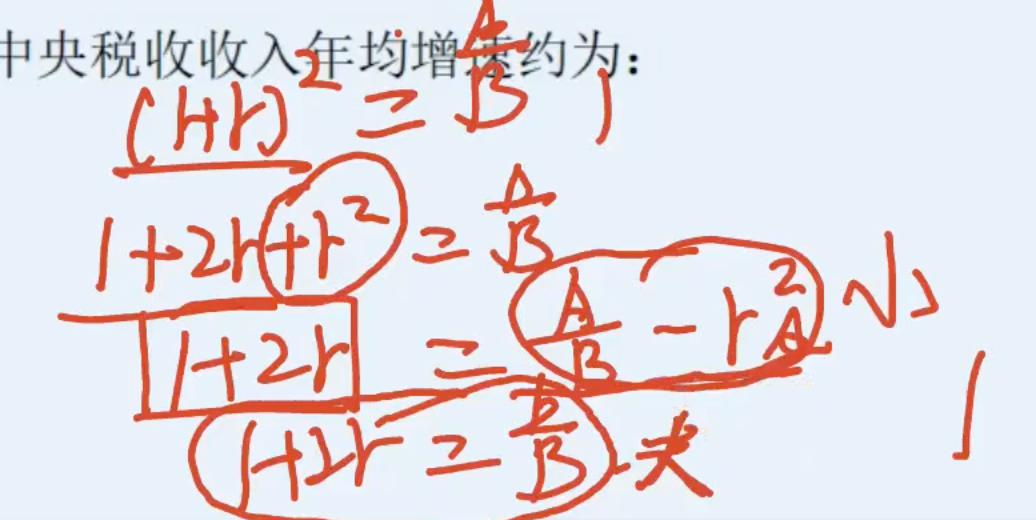 中央税收收入年均增速约为：
(1+r)² = A/B
1+2r+r² = A/B
1+2r = A/B - r² 小
1+2r = A/B